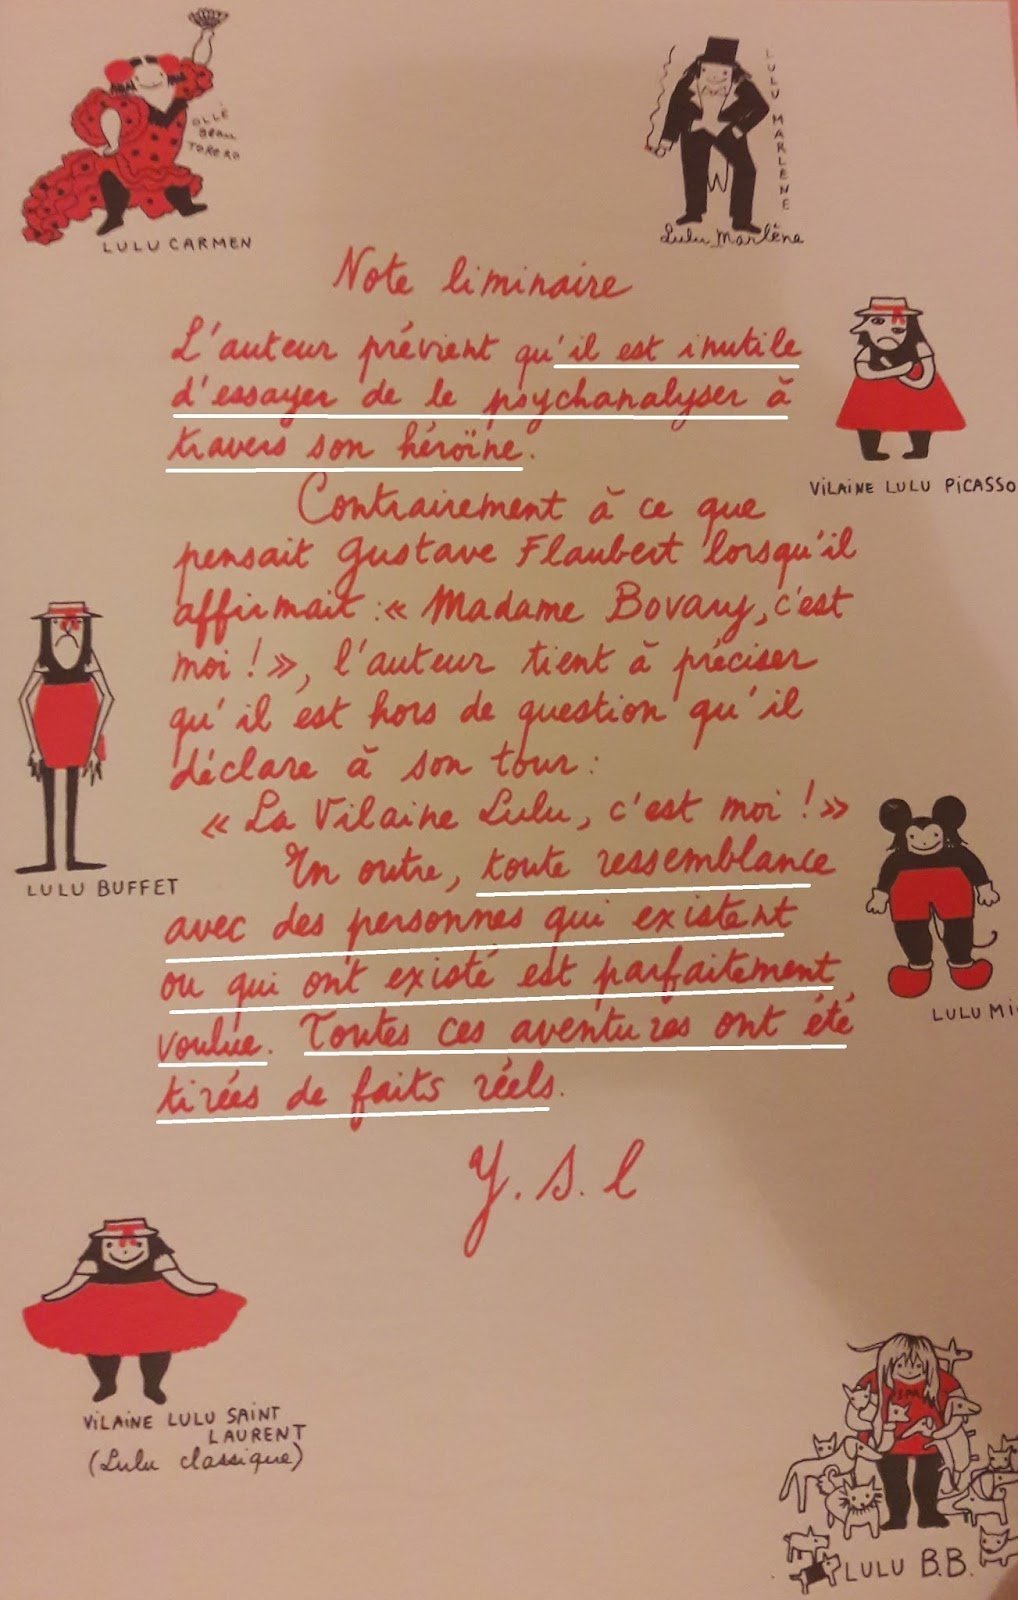 OLLÉ
BEAU
TORERO
LULU CARMEN
LULU MARLÈNE
Lulu Marlène
Note liminaire
L'auteur prévient qu'il est inutile
d'essayer de le psychanalyser à
travers son héroïne.
VILAINE LULU PICASSO
Contrairement à ce que
pensait Gustave Flaubert lorsqu'il
affirmait : « Madame Bovary, c'est
moi ! », l'auteur tient à préciser
qu'il est hors de question qu'il
déclare à son tour :
« La Vilaine Lulu, c'est moi ! »
LULU BUFFET
En outre, toute ressemblance
avec des personnes qui existent
ou qui ont existé est parfaitement
voulue. Toutes ces aventures ont été
tirées de faits réels.
LULU MI
Y. S. L
VILAINE LULU SAINT
LAURENT
(Lulu classique)
LULU B.B.